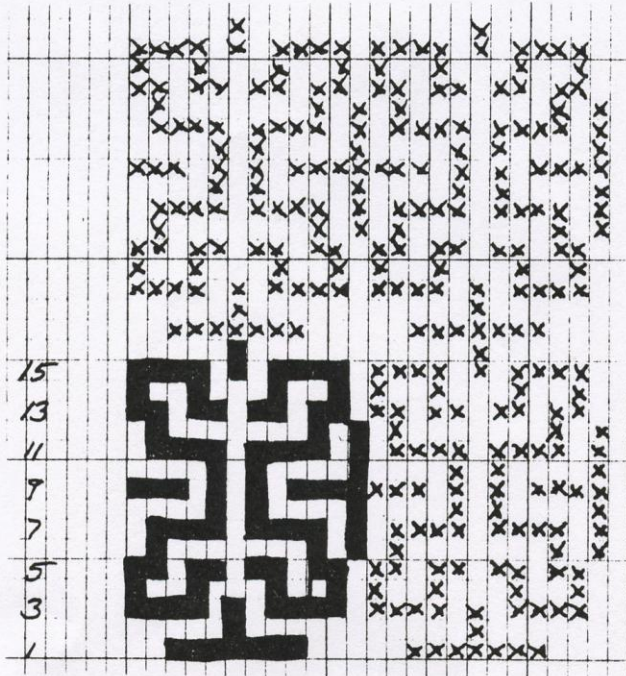 15
13
11
9
7
5
3
1